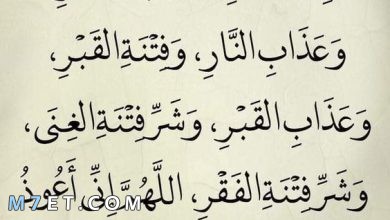 وَعَذَابِ النَّارِ، وَفِتْنَةِ القَبْرِ،
وَعَذَابِ القَبْرِ، وَشَرِّ فِتْنَةِ الغِنَى،
وَشَرِّ فِتْنَةِ الفَقْرِ، اللَّهُمَّ إِنِّي أَعُوذُ
M7ET.COM